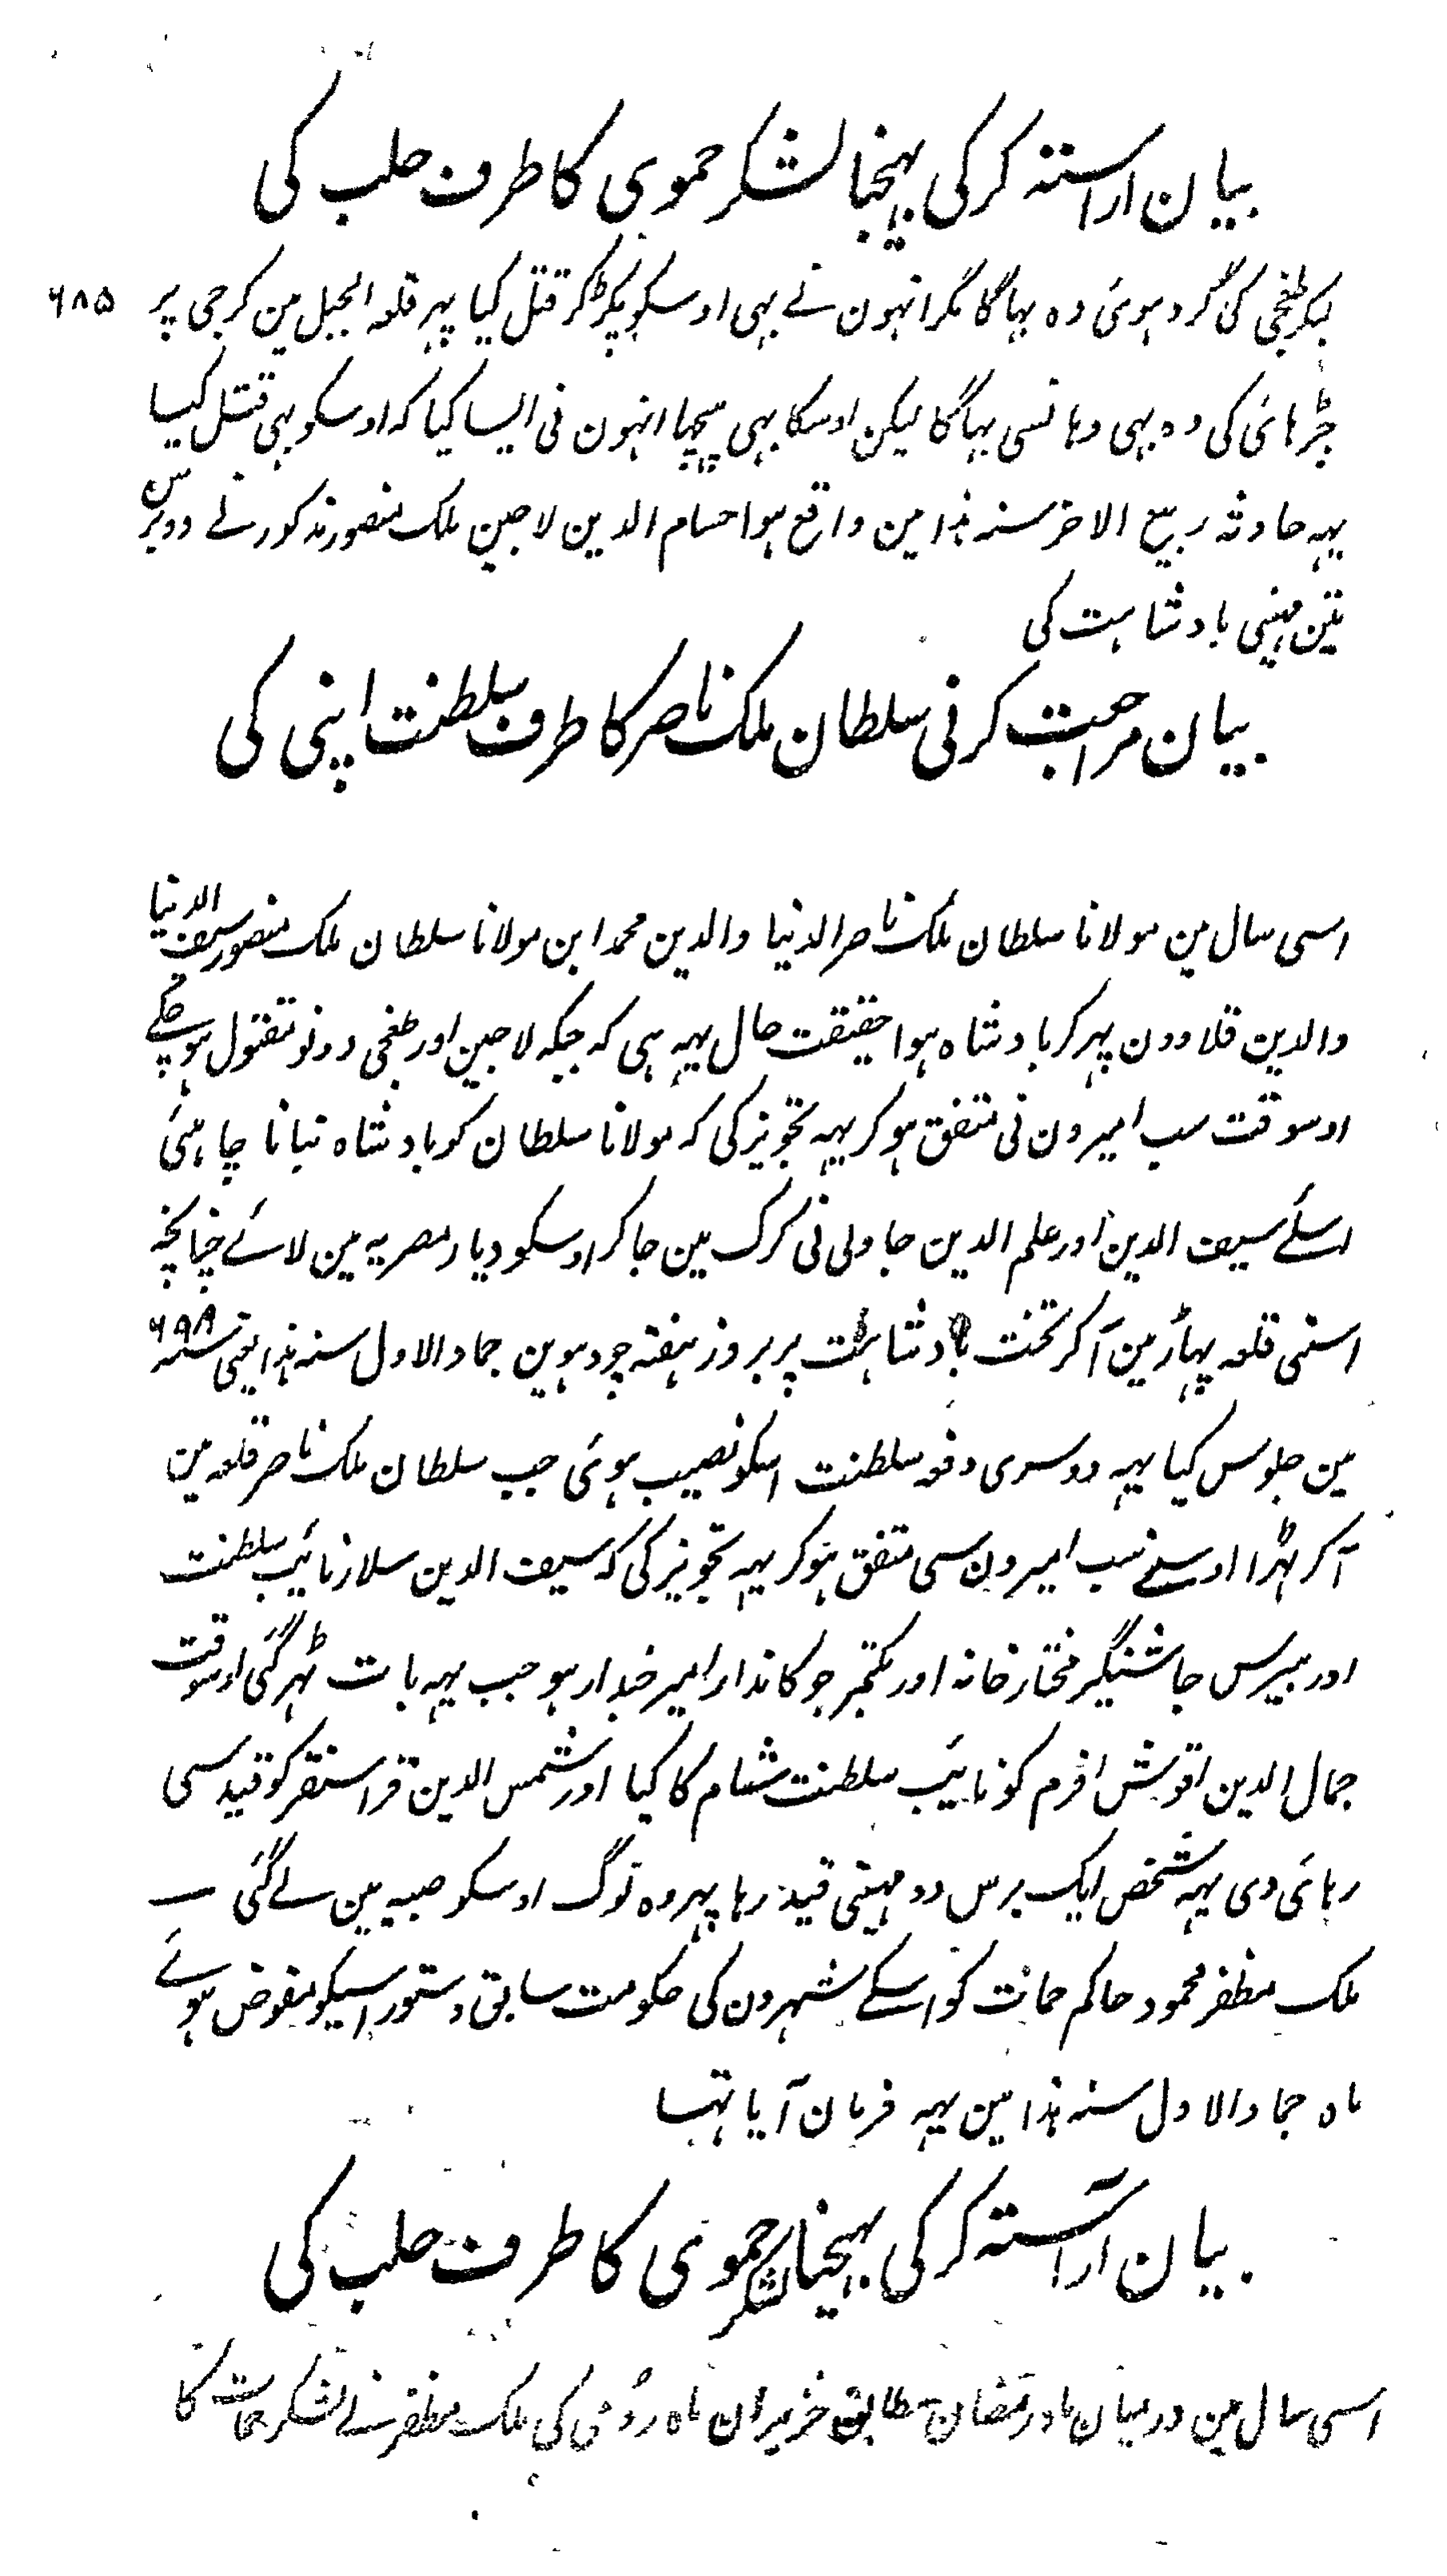 بیان اراستہ کرکی بہیجنا لشکر حموی کا طرف حلب کی
۶۸۵
لیکر طغجی کی گرد ہوئی وہ بہاگا مگر انہون نے بہی اوسکو پکڑ کر قتل کیا پہر قلعہ الجبل مین کرجی پر
چڑہائی کی وہ بہی وہانسی بہاگا لیکن اوسکا بہی پیچہا انہون نی ایسا کیا کہ اوسکو بہی قتل کیا
یہہ حادثہ ربیع الاخر سنہ ہذا مین واقع ہوا حسام الدین لاجین ملک منصور مذکور نے دو برس
تین مہینی بادشاہت کی
بیان مراجعت کرنی سلطان ملک ناصر کا طرف سلطنت اپنی کی
اسی سال مین مولانا سلطان ملک ناصر الدنیا والدین محمد ابن مولانا سلطان ملک منصور سیف الدنیا
والدین قلاوون پہر کر بادشاہ ہوا حقیقت حال یہہ ہی کہ جبکہ لاجین اور طغجی دونو مقتول ہوچکے
اوسوقت سب امیرون نی متفق ہوکر یہہ تجویز کی کہ مولانا سلطان کو بادشاہ بنانا چاہئی
اسلئے سیف الدین اور علم الدین جاولی نی کرک مین جاکر اوسکو دیار مصریہ مین لائے چنانچہ
اسنی قلعہ پہاڑ مین آکر تخت بادشاہت پر بروز ہفتہ چودہوین جمادالاول سنہ ہذا یعنی سنہ ۶۹۸
مین جلوس کیا یہہ دوسری دفعہ سلطنت اسکو نصیب ہوئی جب سلطان ملک ناصر قلعہ مین
آکر ٹہرا اوسنے سب امیرون سی متفق ہوکر یہہ تجویز کی کہ سیف الدین سلار نائیب سلطنت
اور بیبرس جاشنگیر مختار خانہ اور بکتمر جوکاندار امیر خبدار ہو جب یہہ بات ٹہر گئی اوسوقت
جمال الدین اقوش افرم کو نائیب سلطنت شام کا کیا اور شمس الدین قراسنقر کو قید سی
رہائی دی یہہ شخص ایک برس دو مہینی قید رہا پہر وہ لوگ اوسکو صبیہ مین لے گئی
ملک مظفر محمود حاکم حمات کو اسکے شہرون کی حکومت سابق دستور اسیکو مفوض ہوئے
ماہ جمادالاول سنہ ہذا مین یہہ فرمان آیا تہا
بیان آراستہ کرکی بہیجنا لشکر حموی کا طرف حلب کی
اسی سال مین درمیان ماہ رمضان مطابق خزیران ماہ رومی کی ملک مظفر نے لشکر حمات کا